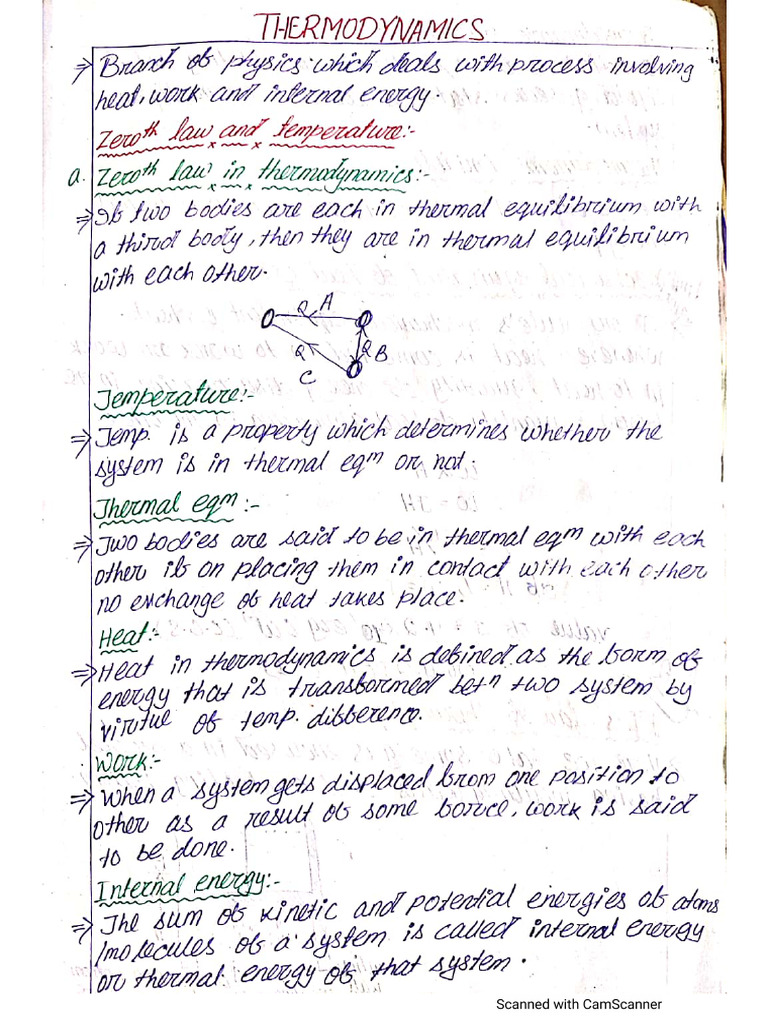 THERMODYNAMICS
⇒ Branch of physics which deals with process involving
heat, work and internal energy.
Zeroth law and temperature:-
a. Zeroth law in thermodynamics:-
⇒ If two bodies are each in thermal equilibrium with
a third body, then they are in thermal equilibrium
with each other.
Q A
Q B
Q
C
Temperature:-
⇒ Temp. is a property which determines whether the
system is in thermal eqm or not.
Thermal eqm :-
⇒ Two bodies are said to be in thermal eqm with each
other if on placing them in contact with each other
no exchange of heat takes place.
Heat:-
⇒ Heat in thermodynamics is defined as the form of
energy that is transformed betn two system by
virtue of temp. difference.
Work:-
⇒ When a system gets displaced from one position to
other as a result of some force, work is said
to be done.
Internal energy:-
⇒ The sum of kinetic and potential energies of atoms
/molecules of a system is called internal energy
or thermal energy of that system.
Scanned with CamScanner